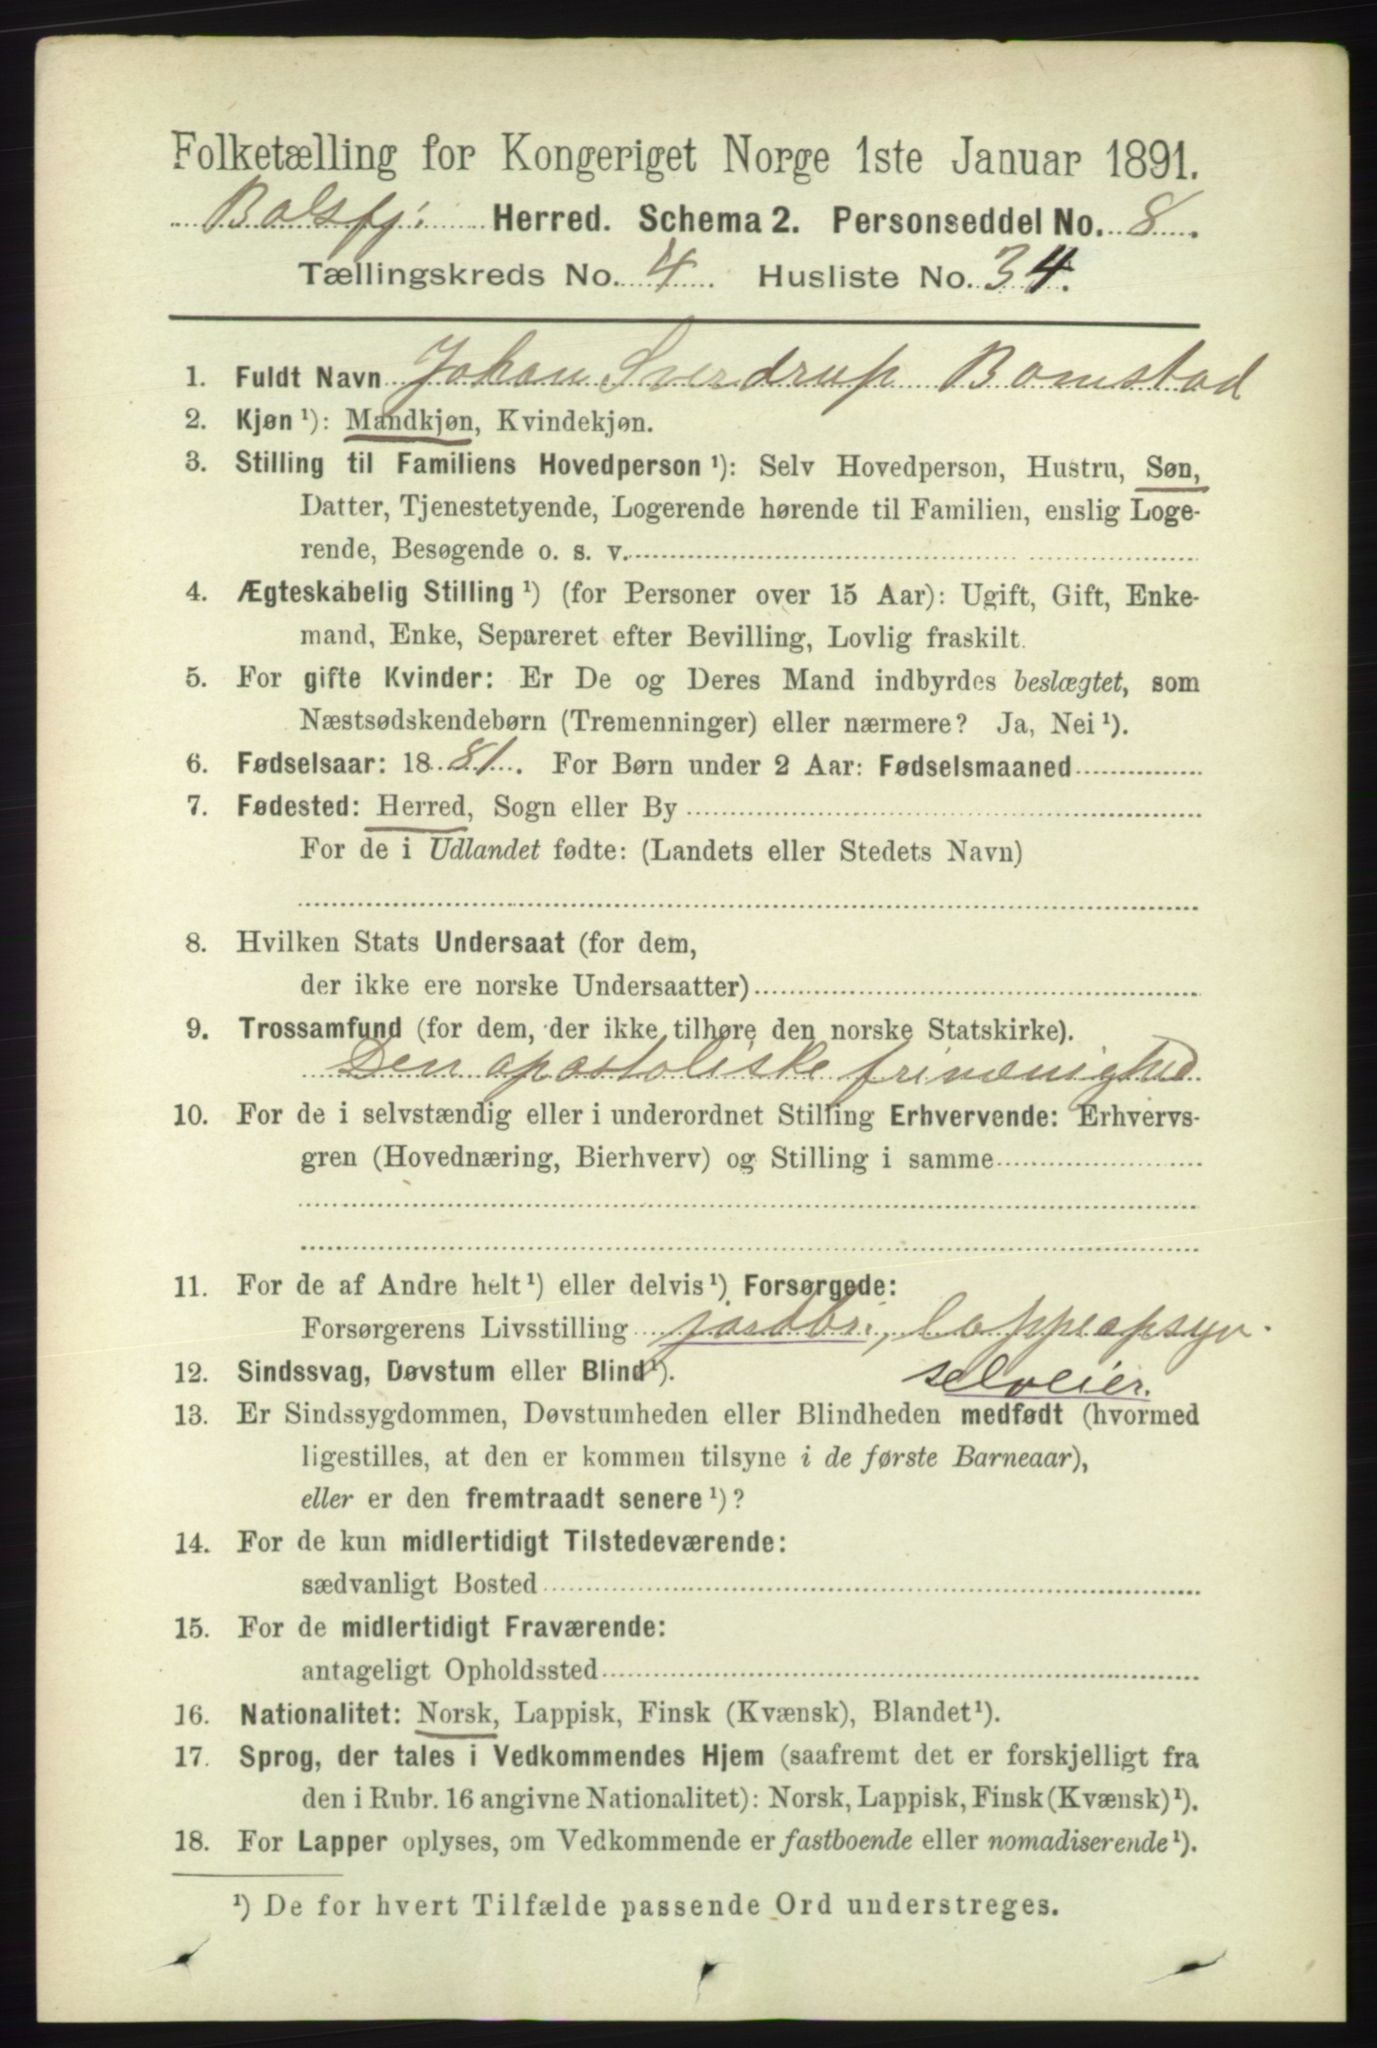 Folketælling for Kongeriget Norge 1ste Januar 1891.
Balsfj: Herred. Schema 2. Personseddel No. 8.
Tællingskreds No. 4. Husliste No. 34.
1. Fuldt Navn Johan Sverdrup Bomstad
2. Kjøn ¹): Mandkjøn, Kvindekjøn.
3. Stilling til Familiens Hovedperson ¹): Selv Hovedperson, Hustru, Søn,
Datter, Tjenestetyende, Logerende hørende til Familien, enslig Loge-
rende, Besøgende o. s. v.
4. Ægteskabelig Stilling ¹) (for Personer over 15 Aar): Ugift, Gift, Enke-
mand, Enke, Separeret efter Bevilling, Lovlig fraskilt.
5. For gifte Kvinder: Er De og Deres Mand indbyrdes beslægtet, som
Næstsødskendebørn (Tremenninger) eller nærmere? Ja, Nei ¹).
6. Fødselsaar: 1881. For Børn under 2 Aar: Fødselsmaaned
7. Fødested: Herred, Sogn eller By
For de i Udlandet fødte: (Landets eller Stedets Navn)
8. Hvilken Stats Undersaat (for dem,
der ikke ere norske Undersaatter)
9. Trossamfund (for dem, der ikke tilhøre den norske Statskirke).
Den apostoliske frimenighed
10. For de i selvstændig eller i underordnet Stilling Erhvervende: Erhvervs-
gren (Hovednæring, Bierhverv) og Stilling i samme
11. For de af Andre helt ¹) eller delvis ¹) Forsørgede:
Forsørgerens Livsstilling jordbr:, Lappeopsyn.
selveier.
12. Sindssvag, Døvstum eller Blind ¹).
13. Er Sindssygdommen, Døvstumheden eller Blindheden medfødt (hvormed
ligestilles, at den er kommen tilsyne i de første Barneaar),
eller er den fremtraadt senere ¹)?
14. For de kun midlertidigt Tilstedeværende:
sædvanligt Bosted
15. For de midlertidigt Fraværende:
antageligt Opholdssted
16. Nationalitet: Norsk, Lappisk, Finsk (Kvænsk), Blandet ¹).
17. Sprog, der tales i Vedkommendes Hjem (saafremt det er forskjelligt fra
den i Rubr. 16 angivne Nationalitet): Norsk, Lappisk, Finsk (Kvænsk) ¹).
18. For Lapper oplyses, om Vedkommende er fastboende eller nomadiserende ¹).
¹) De for hvert Tilfælde passende Ord understreges.